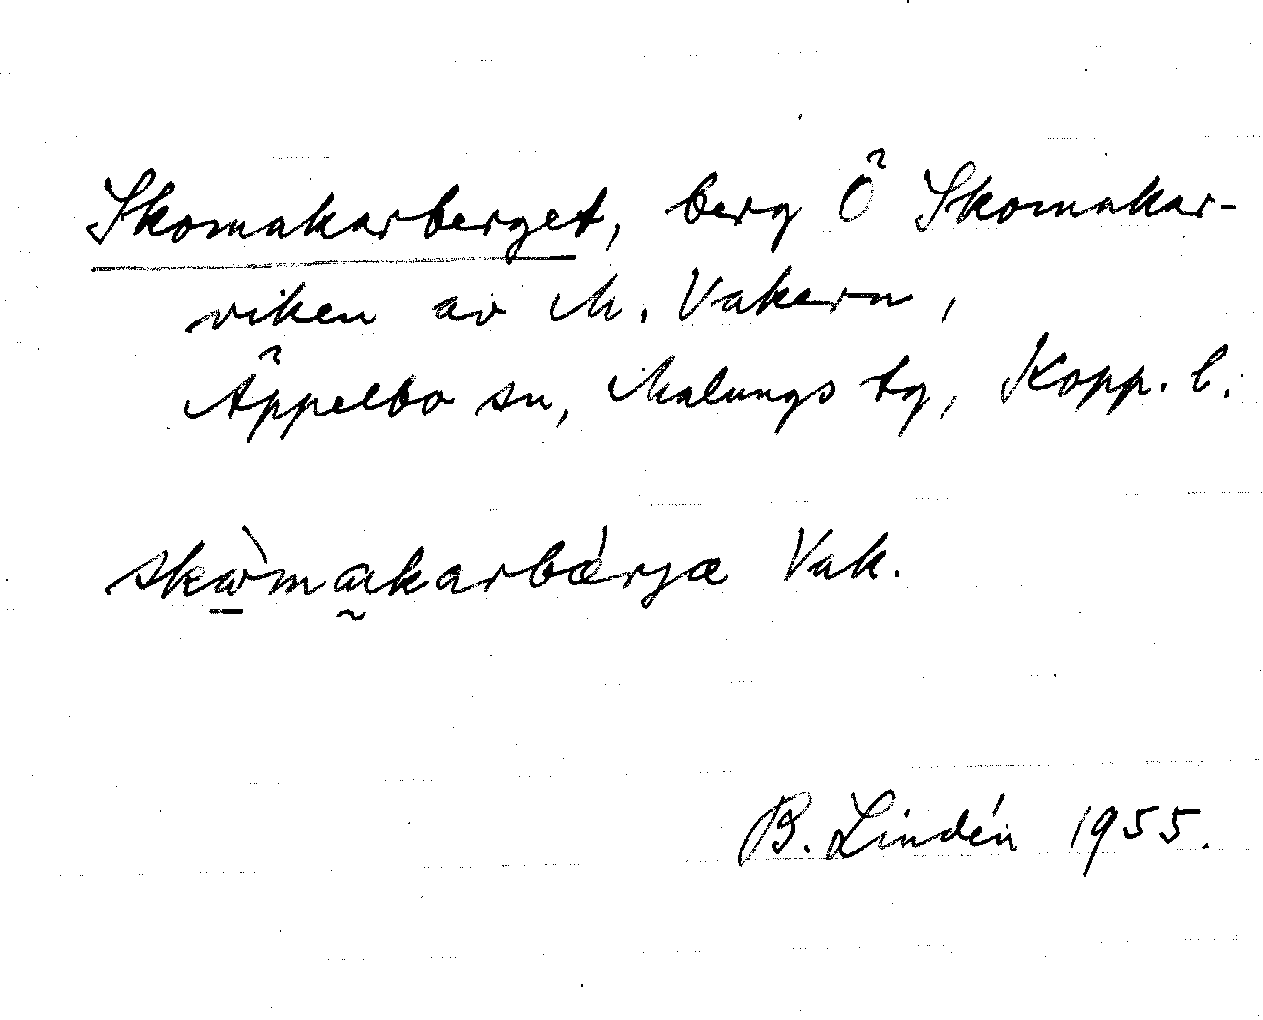 Skomakarberget, berg Ö Skomakar-
viken av M. Vakern,
Äppelbo sn, Malungs tg, Kopp. l.
skὼmakarbǽrjæ Vak.
B. Lindén 1955.